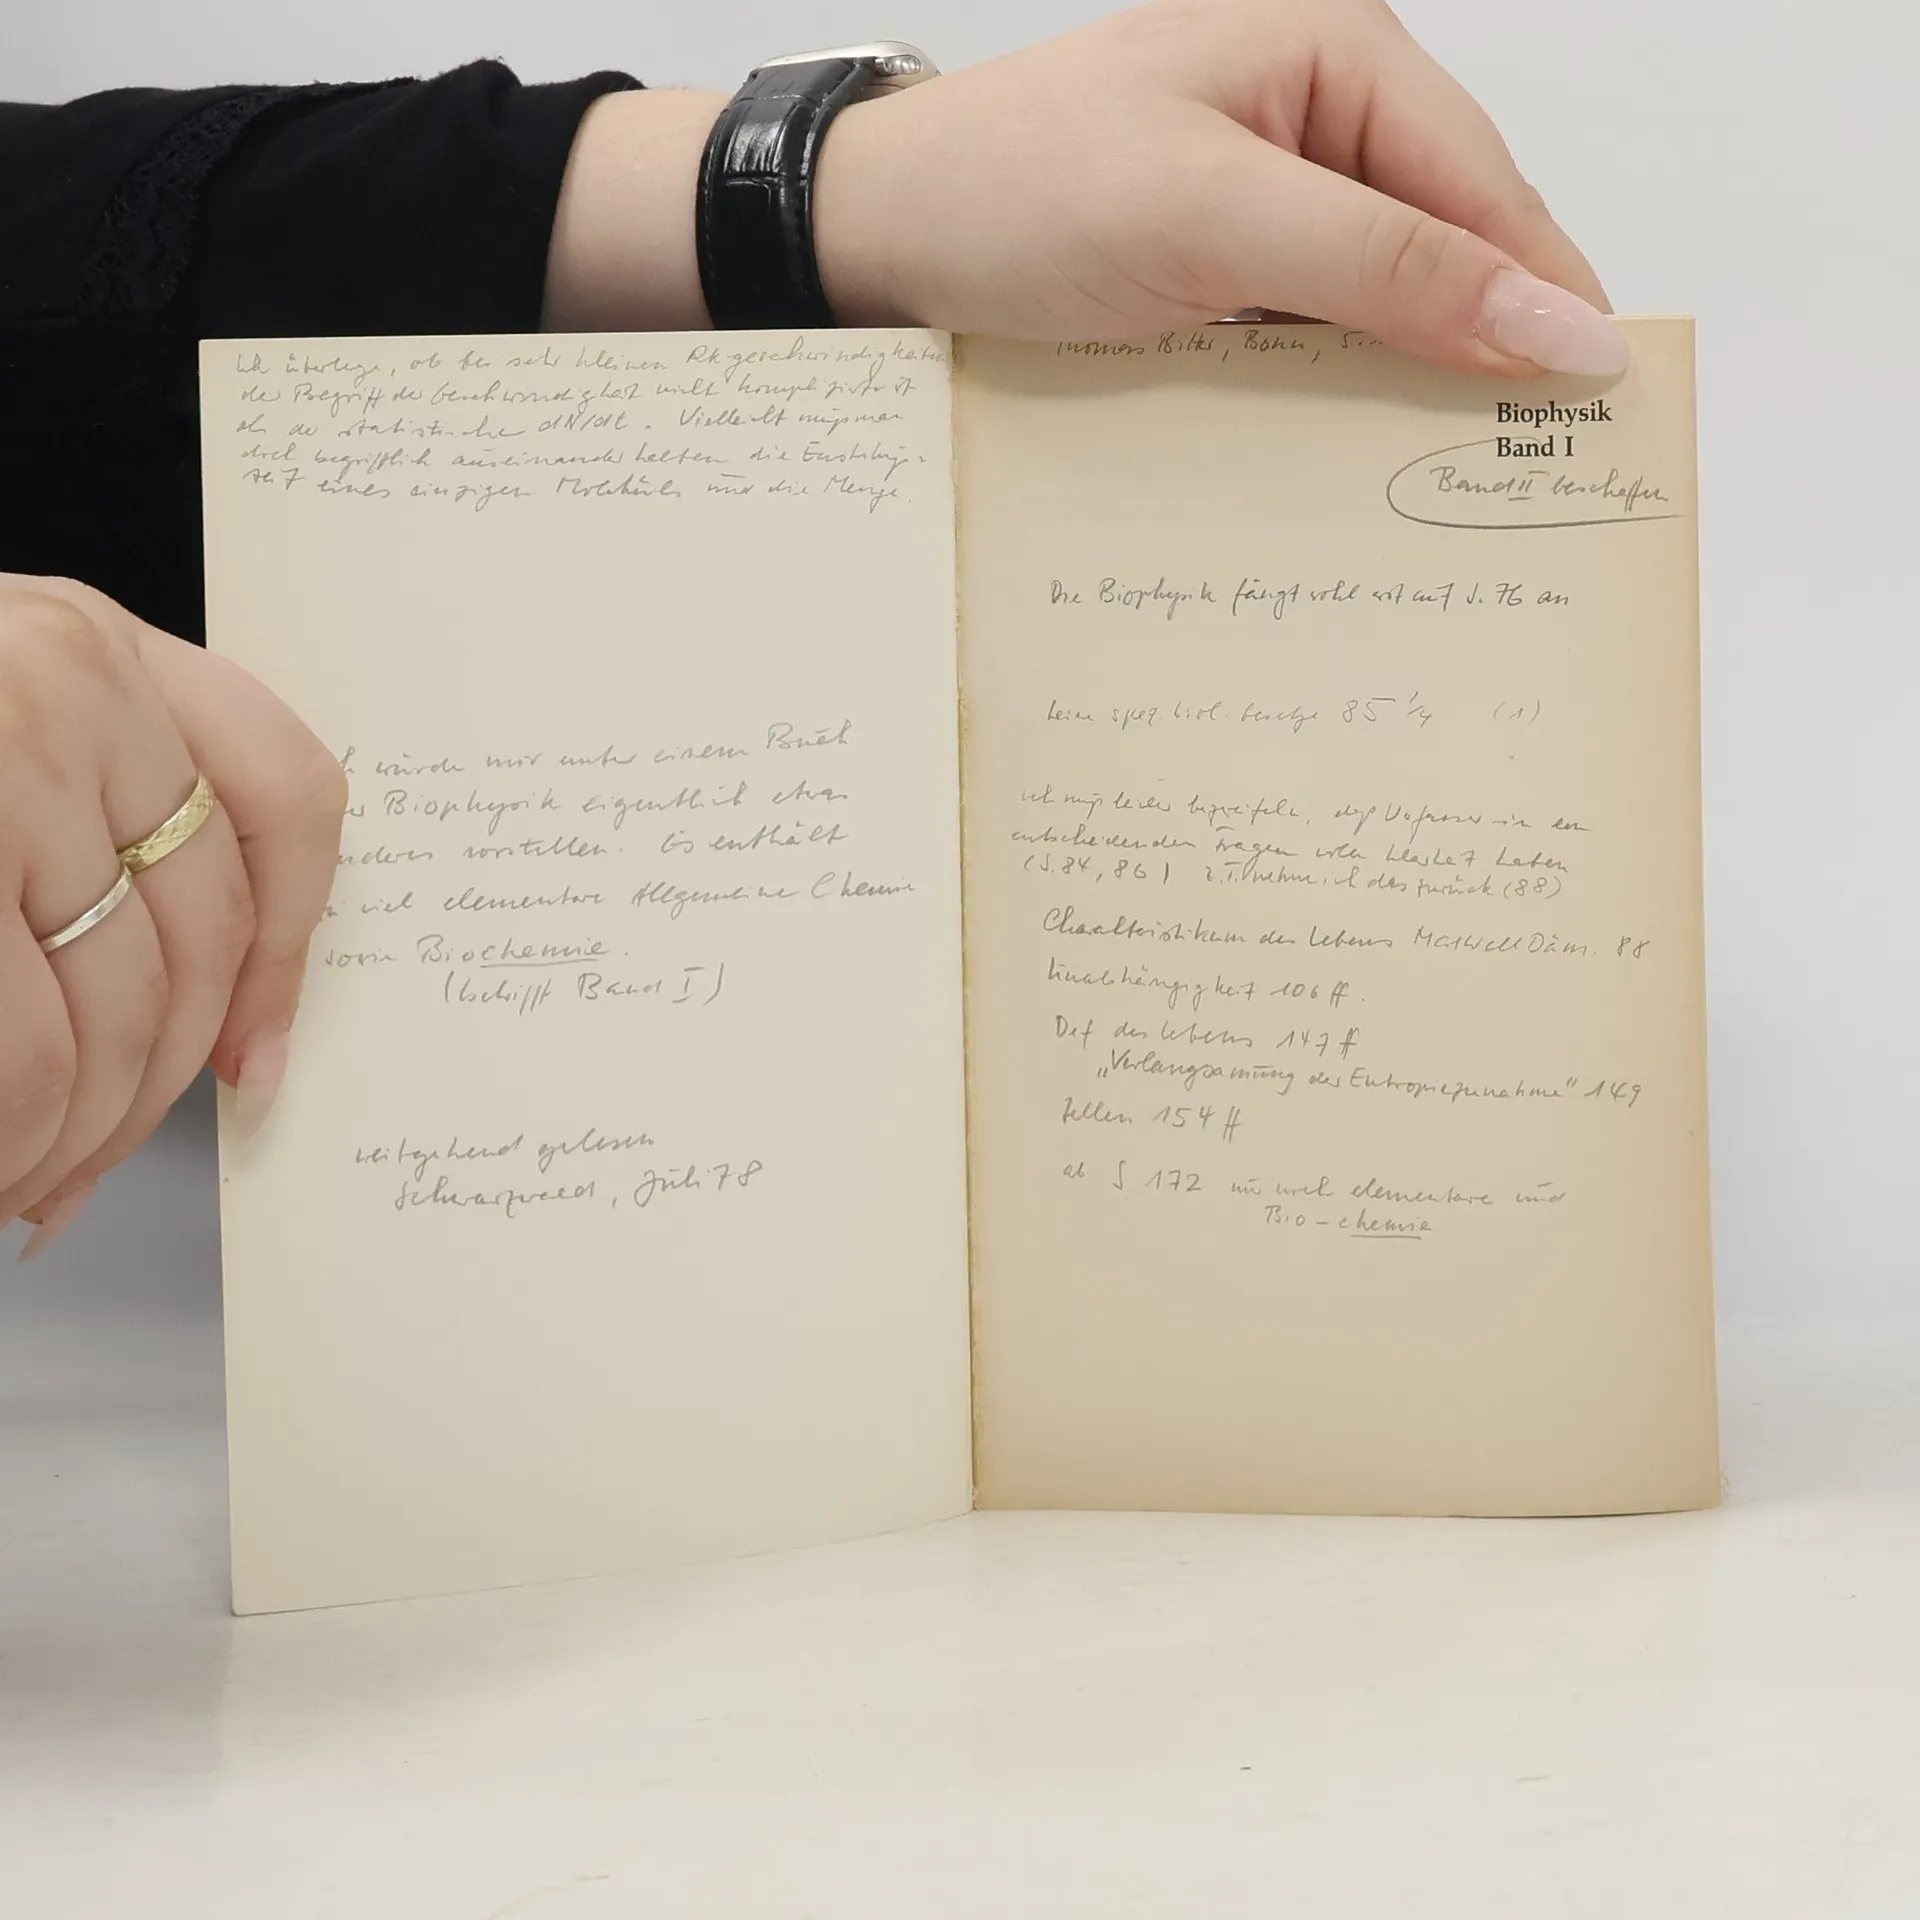 Ich überlege, ob bei sehr kleinen Rk-geschwindigkeiten
der Begriff der Geschwindigkeit nicht komplizierter ist
als der statistische dN/dt. Vielleicht muss man
doch begrifflich auseinander halten die Entstehungs-
zeit eines einzigen Moleküls und die Menge.
würde mir unter einem Buch
Biophysik eigentlich etwas
anderes vorstellen. Es enthält
viel elementare Allgemeine Chemie
sowie Biochemie.
(betrifft Band I)
weitgehend gelesen
Schwarzwald, Juli 78
Thomas Bitter, Bonn,
Biophysik
Band I
Band II beschaffen
Die Biophysik fängt wohl erst auf S. 76 an
keine spez. biol. Gesetze 85 1/4 (1)
ich muß leider bezweifeln, daß Verfasser in den
entscheidenden Fragen volle Klarheit haben
(S. 84, 86) z.T. nehme ich das zurück (88)
Charakteristikum des Lebens Maxwell Däm. 88
Unabhängigkeit 106 ff.
Def des Lebens 147 ff
„Verlangsamung der Entropiezunahme" 149
Zellen 154 ff
ab S 172 nur noch elementare und
Bio-chemie